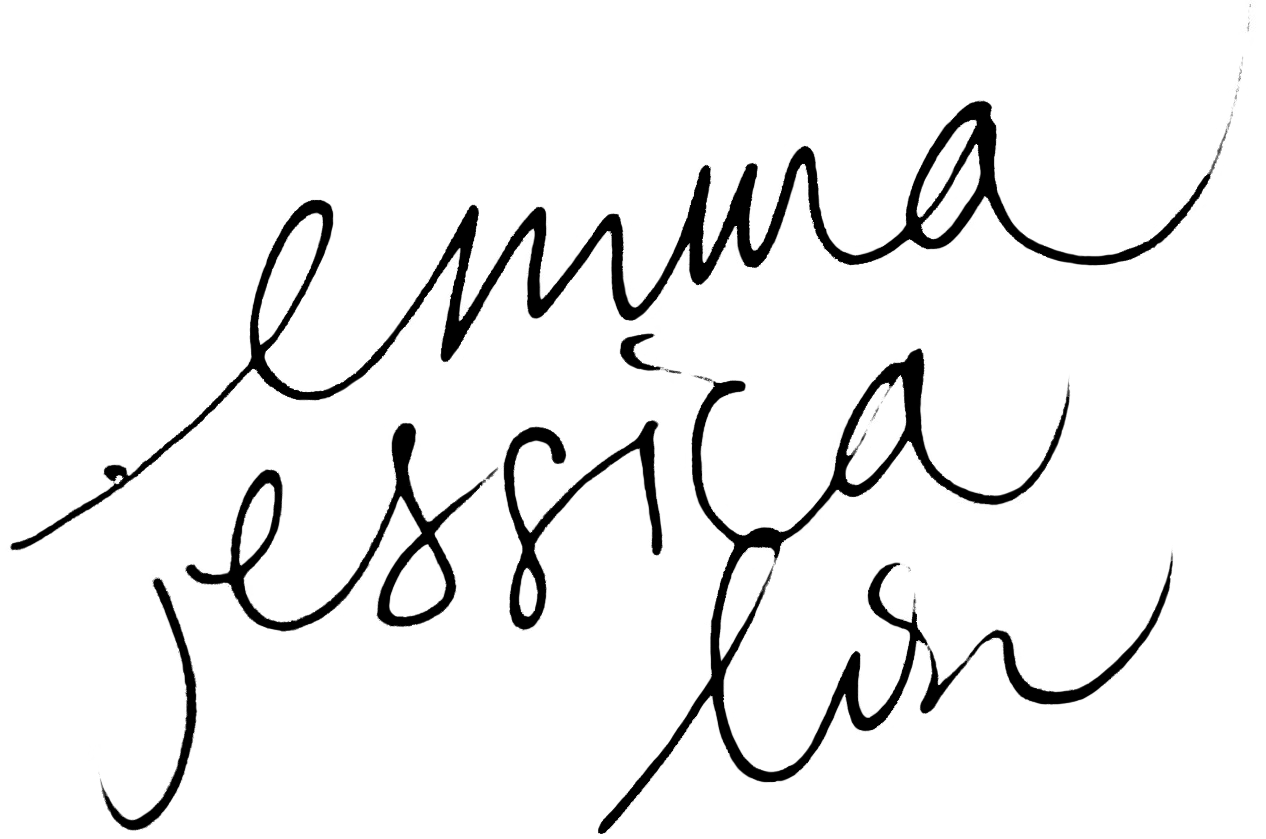 emma
jessica
lin